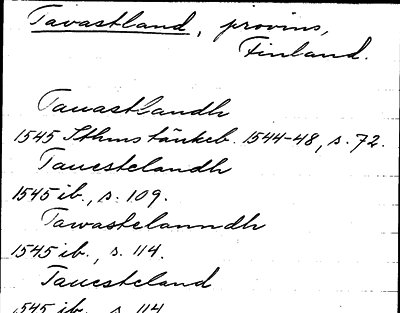 Tavastland, provins,
Finland.
Tauastlandh
1545 Sthms tänkeb. 1544-48, s. 72.
Tauestelandh
1545 ib., s. 109.
Tawastelanndh
1545 ib., s. 114.
Tauesteland
1545 ib., s. 114